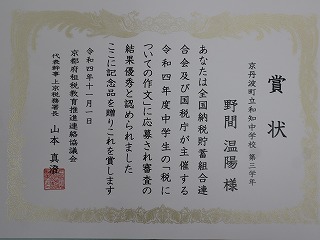 賞状
京丹波町立和知中学校 第三学年
野間 温陽 様
あなたは全国納税貯蓄組合連
合会及び国税庁が主催する
令和四年度中学生の「税に
ついての作文」に応募され審査の
結果優秀と認められました
ここに記念品を贈りこれを賞します
令和四年十一月一日
京都府租税教育推進連絡協議会
代表幹事上京税務署長 山本 真澄